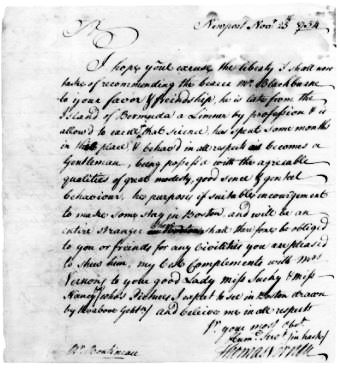 Sr Newport Novr 25th 1754
I hope youl excuse the liberty I shall now
take of recommending the bearer Mr Blackburne
to your favor & friendship, he is late from the
Island of Bermuda a Limner by profession & is
allow'd to excell that science, has spent some months
in this place, & behav'd in all respects as becomes a
Gentleman, being possess'd with the agreable
qualities of great modesty, good sence & genteel
behaviour, his purposes if suitable incouragement
to make some stay in Boston, and will be an
entire stranger that therefore be obliged
to you or friends for any Civilities you are pleas'd
to shew him, my best Complements with Mrs
Vernons to your good Lady Miss Sucky & Miss
Nancy whose Pictures I expect to see in Boston drawn
by the above Gentm and believe me in all respects
Sr your most Obt
Hum: Servt (in haste)
Thomas Vernon
Mr Boutineau